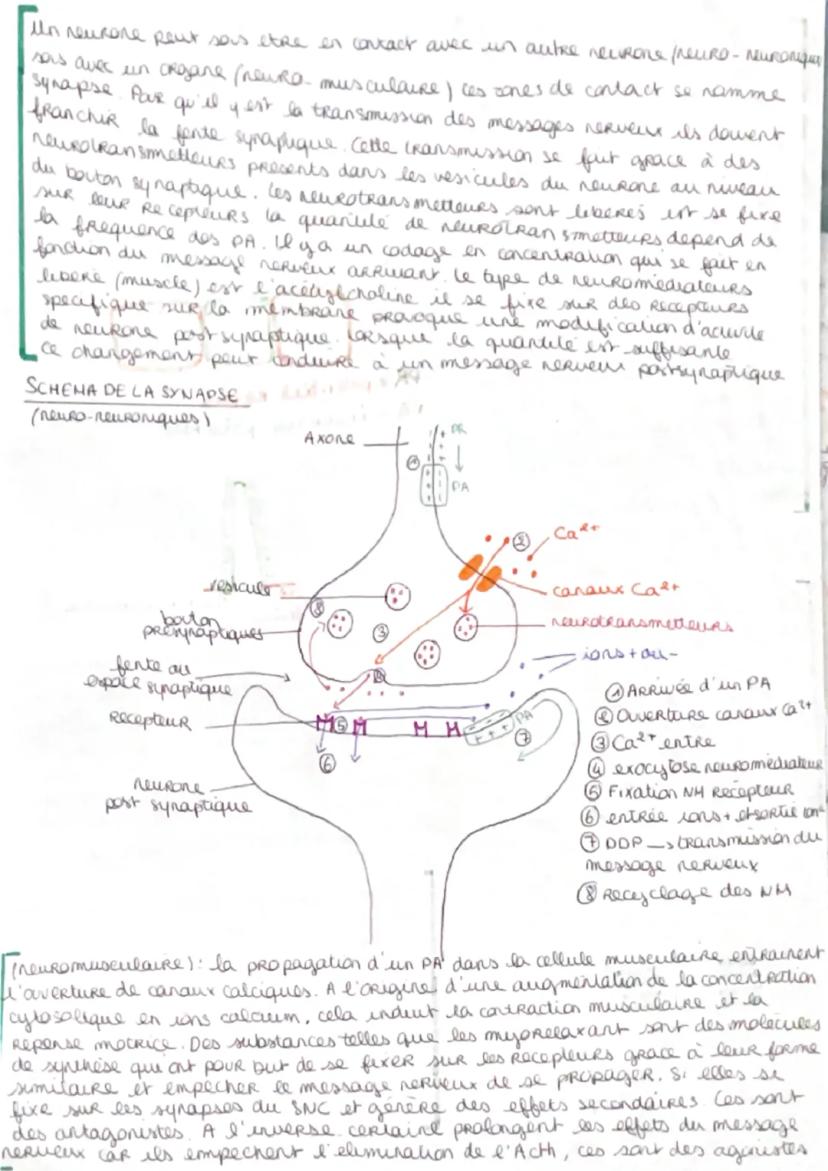 Un neurone peut sois etre en contact avec un autre neurone (neuro-neuronique
sois avec un organe (neuro-musculaire) ces zones de contact se namme
synapse. Pour qu'il y est la transmission des messages nerveux ils doivent
franchir la fente synaptique. Cette transmission se fait grace à des
neurotransmetteurs presents dans les vesicules du neurone au niveau
du bouton synaptique. Les neurotransmetteurs sont liberés et se fixe
sur leur recepteurs la quantité de neurotransmetteurs depend de
la frequence des PA. Il y a un codage en concentration qui se fait en
fonction du message nerveux arrivant. Le type de neuromédiateurs
libéré (muscle) est l'acétylcholine il se fixe sur des recepteurs
specifique sur la membrane provoque une modification d'activité
de neurone postsynaptique. Lorsque la quantité est suffisante
ce changement peut conduire à un message nerveux postsynaptique
SCHEMA DE LA SYNAPSE
(neuro-neuroniques)
Axone
PR
①
PA
②
Ca²⁺
canaux Ca²⁺
vesicule
⑧
bouton
presynaptiques
③
neurotransmetteurs
④
ions + ou -
fente ou
espace synaptique
recepteur
⑤
PA
⑦
⑥
neurone
post synaptique
① Arrivée d'un PA
② Ouverture canaux Ca²⁺
③ Ca²⁺ entre
④ exocytose neuromédiateur
⑤ Fixation NM recepteur
⑥ entrée ions+ et sortie ion⁻
⑦ DDP → transmission du
message nerveux
⑧ Recyclage des NM
(neuromusculaire): la propagation d'un PA dans la cellule musculaire, entrainent
l'ouverture de canaux calciques. A l'origine d'une augmentation de la concentration
cytosolique en ions calcium, cela induit la contraction musculaire et la
réponse motrice. Des substances telles que les myorelaxant sont des molécules
de synthèse qui ont pour but de se fixer sur les recepteurs grace à leur forme
similaire et empecher le message nerveux de se propager. Si elles se
fixe sur les synapses du SNC et génère des effets secondaires. Ces sont
des antagonistes. A l'inverse certaine prolongent les effets du message
nerveux car ils empechent l'elimination de l'Acth, ces sont des agonistes